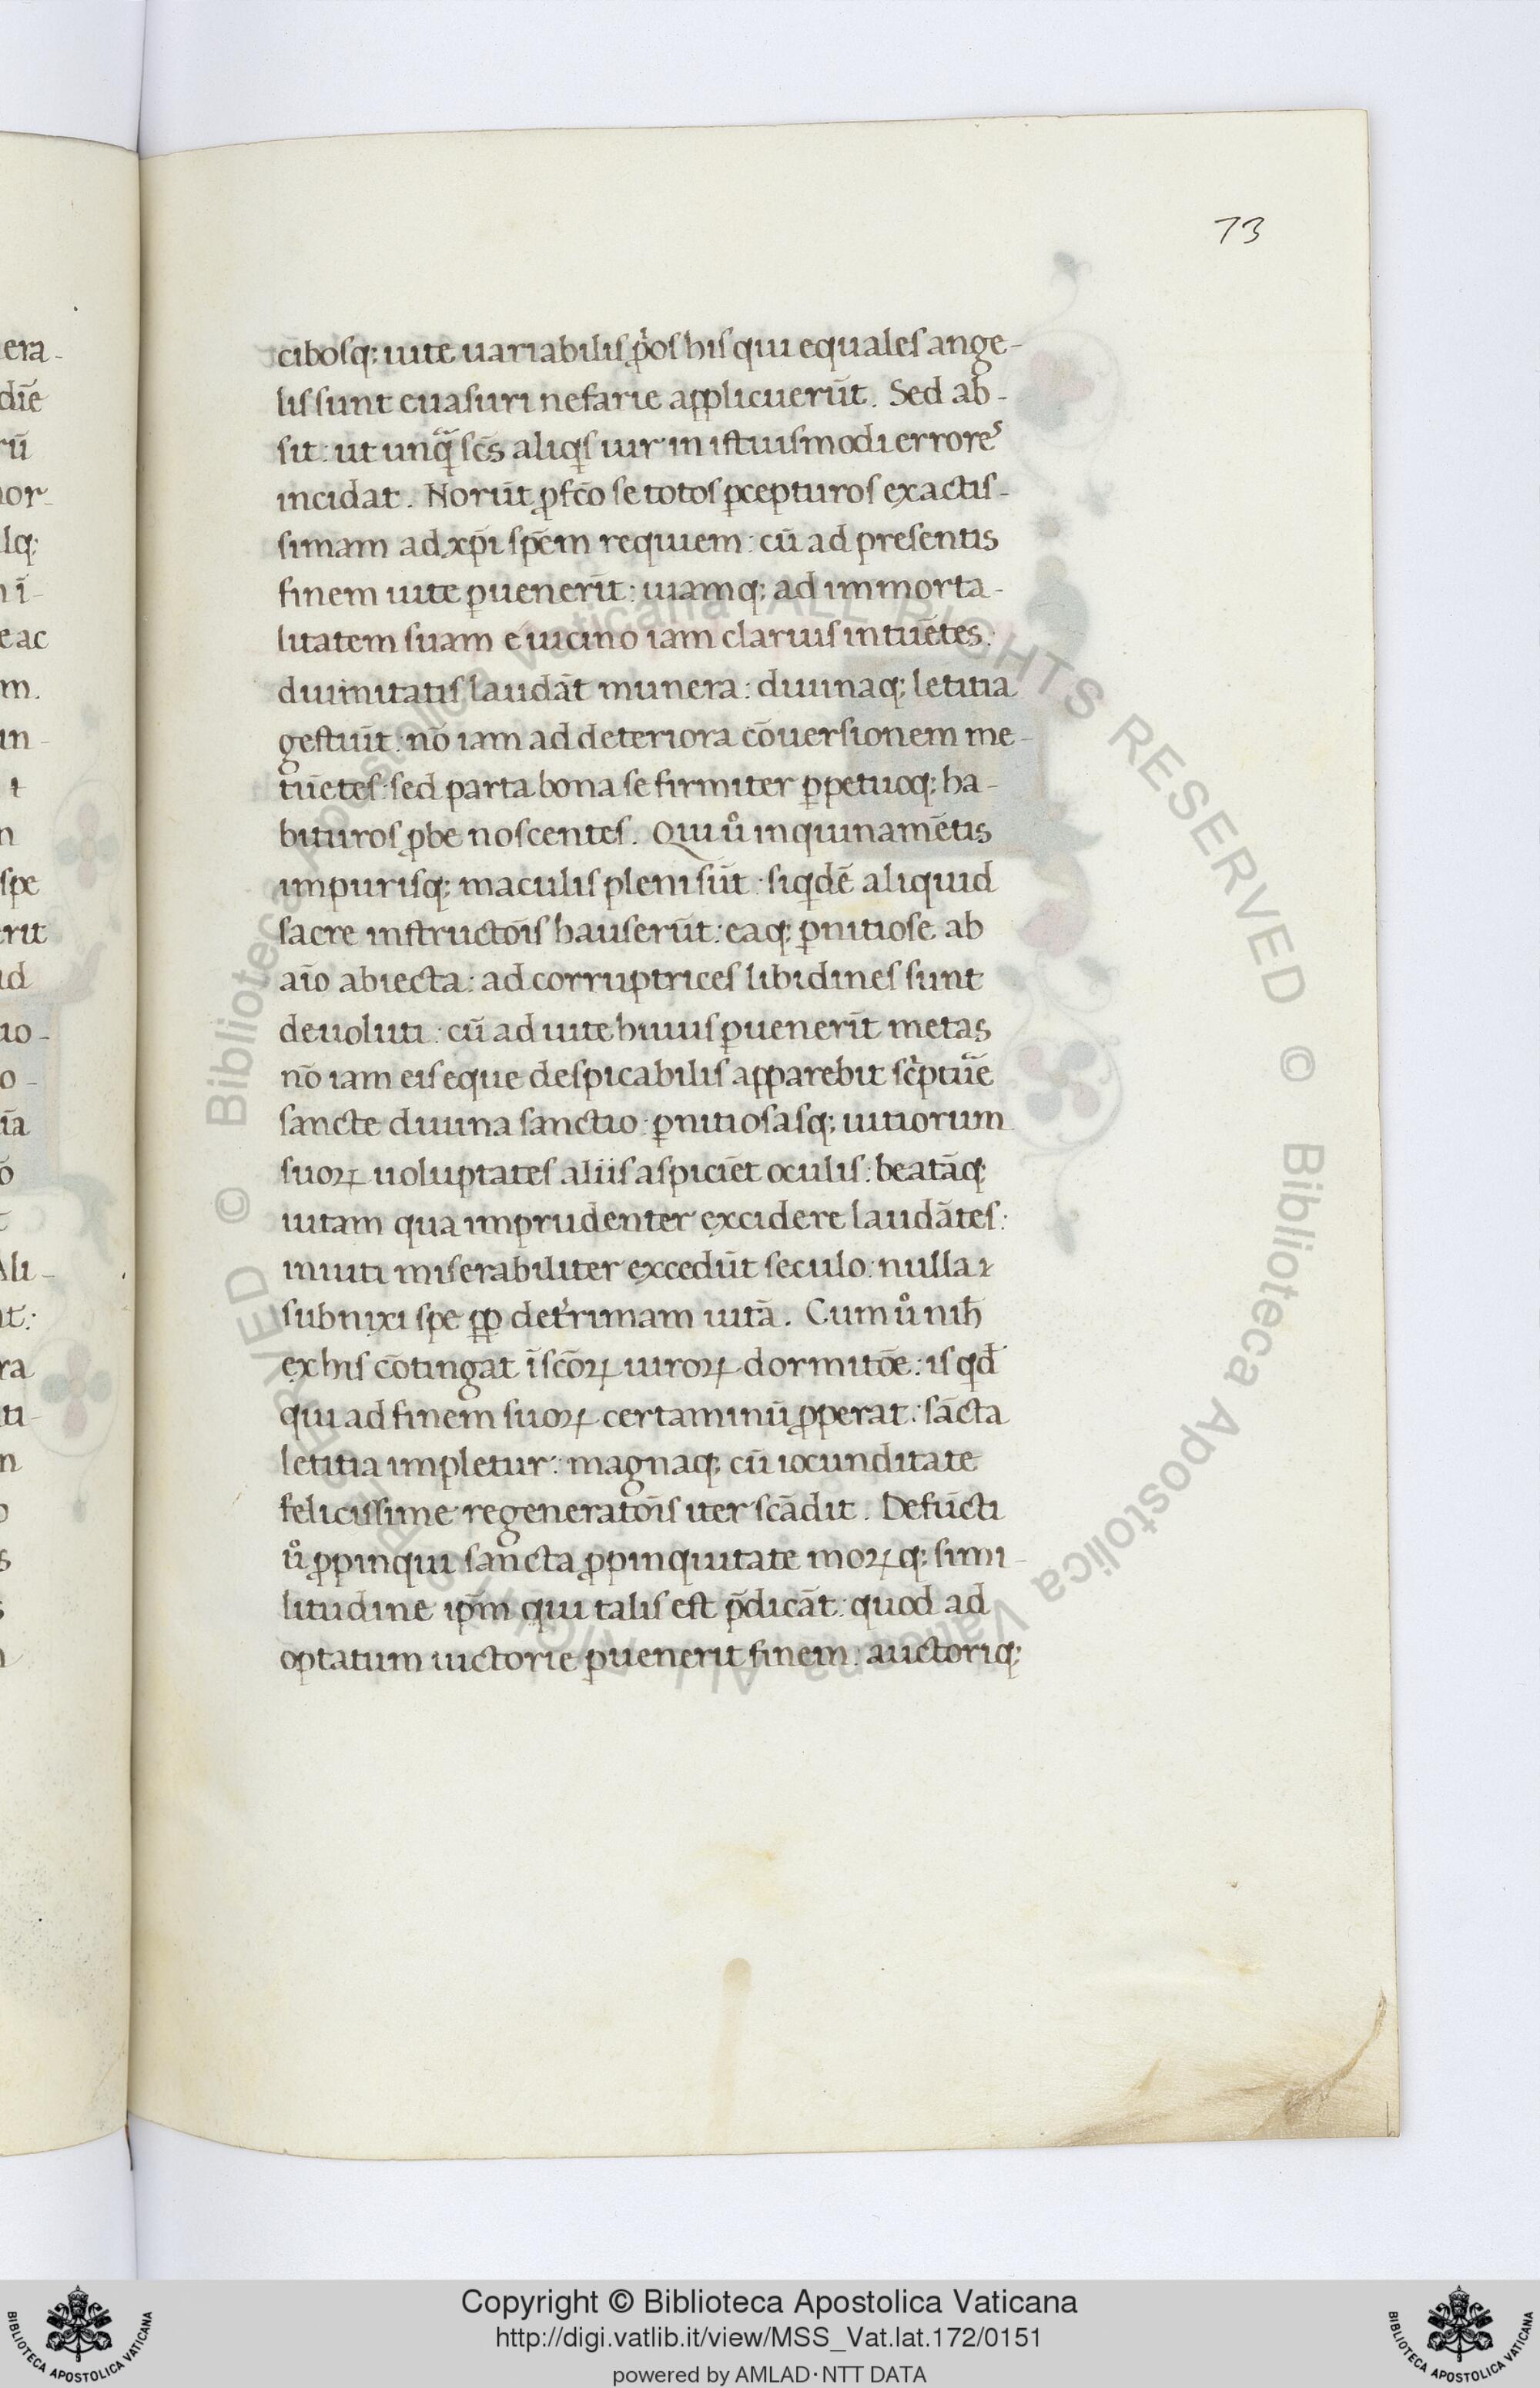 73
cibosq; uite uariabilis ꝓ̓os his qui equales ange-
lis sunt euasuri nefarie applicuerūt. Sed ab-
sit: ut unq̃ scs̄ aliqͥs uir in istiusmodi erroreˢ
incidat. Norūt ꝓfc̄o se totos ꝑcepturos exactis-
simam ad xp̄i spēm requiem: cū ad presentis
finem uite ꝑuenerīt: uiamq; ad immorta-
litatem suam é uicino iam clarius intuētes:
diuinitatis laudāt munera: diuinaq; letitia
gestiūt: nō iam ad deteriora cōuersionem me-
tuētes: sed parta bona se firmiter ꝑpetuoq; ha-
bituros ꝓbe noscentes. Qui ůͦ inquinamētis
impurisq; maculis pleni sūt: siqͥdē aliquid
sacre instructōis hauserūt: eaq; ꝑnitiose ab
aīo abiecta: ad corruptrices libidines sunt
deuoluti: cū ad uite huius ꝑuenerīt metas
nō iam eis eque despicabilis apparebit scͥptur̃e
sancte diuina sanctio: ꝑnitiosasq; uitiorum
suoꝝ uoluptates aliis aspiciēt oculis: beatāq;
uitam qua imprudenter excidere laudātes:
inuiti miserabiliter excedūt seculo: nulla ⁊
subnixi spe ꝓꝑ det̓rimam uitā. Cum uͦ nih̄
ex his cōtingat ī scōꝝ uiroꝝ dormitōe: is qͥd̄
qui ad finem suoꝝ certaminū ꝓperat: sācta
letitia impletur: magnaq; cū iocunditate
felicissime regeneratōis iter scādit. Defūcti
uͦ ꝓpinqui sancta ꝓpinquitate moꝝq; simi-
litudine ip̄m qui talis est p̄dicāt: quod ad
optatum uictorie ꝑuenerit finem: auctoriq;
Copyright © Biblioteca Apostolica Vaticana
http://digi.vatlib.it/view/MSS_Vat.lat.172/0151
powered by AMLAD·NTT DATA